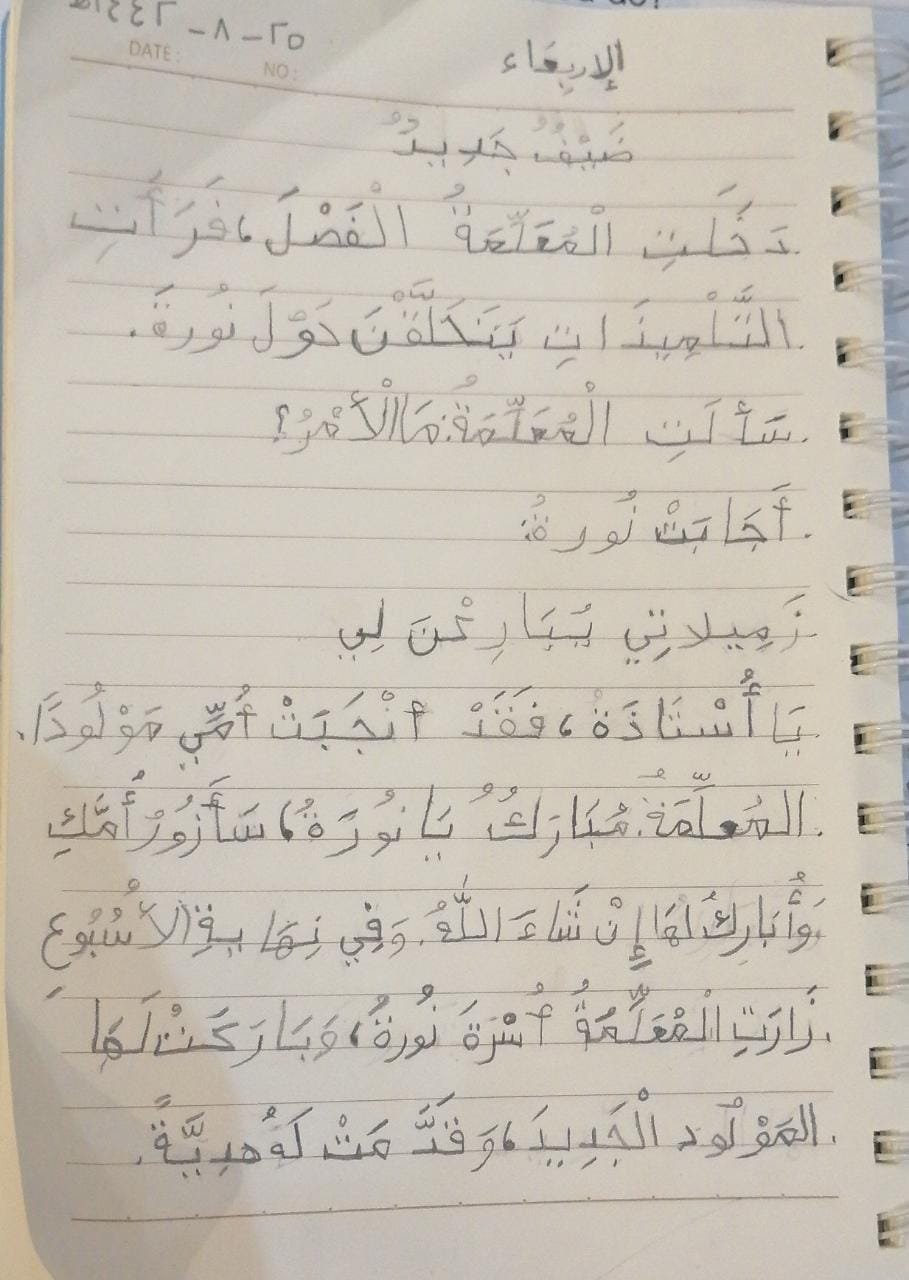 ٢٥-٨-١٤٤٢هـ
DATE:
NO:
الإربعاء
ضَيْفٌ جَدِيدٌ
دَخَلَتِ الْمُعَلِّمَةُ الْفَصْلَ، فَرَأَتِ
التَّلْمِيذَاتِ يَتَحَلَّقْنَ حَوْلَ نُورةَ.
سَأَلَتِ الْمُعَلِّمَةُ: مَا الْأَمْرُ؟
أَجَابَتْ نُورةُ:
زَمِيلاتِي يُبَارِكْنَ لِي
يَا أُسْتَاذَةُ، فَقَدْ أنْجَبَتْ أُمِّي مَوْلُودًا.
المُعلِّمَةُ: مُبَارَكٌ يَا نُورَةُ، سَأَزُورُ أُمَّكِ
وَأُبَارِكُ لهَا إِنْ شَاءَ اللَّهُ. وَفِي نِهَايةِ الأُسْبُوعِ
زَارَتِ الْمُعَلِّمَةُ أُسْرَةَ نُورةُ، وَبَارَكَتْ لَهَا
المَوْلُود الْجَدِيدَ، وَقَدَّمَتْ لَهُ هَدِيَّةً.